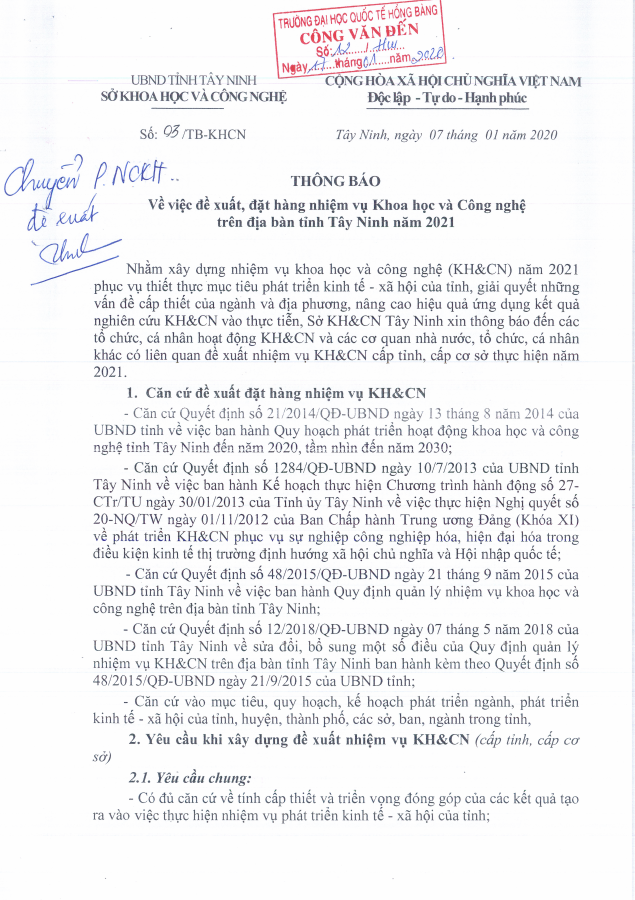 TRƯỜNG ĐẠI HỌC QUỐC TẾ HỒNG BÀNG
CÔNG VĂN ĐẾN
Số: 12
Ngày 17 tháng 01 năm 2020
UBND TỈNH TÂY NINH
SỞ KHOA HỌC VÀ CÔNG NGHỆ
CỘNG HÒA XÃ HỘI CHỦ NGHĨA VIỆT NAM
Độc lập - Tự do - Hạnh phúc
Số: 03 /TB-KHCN
Tây Ninh, ngày 07 tháng 01 năm 2020
Chuyển P. NCKH
đề xuất
THÔNG BÁO
Về việc đề xuất, đặt hàng nhiệm vụ Khoa học và Công nghệ
trên địa bàn tỉnh Tây Ninh năm 2021
Nhằm xây dựng nhiệm vụ khoa học và công nghệ (KH&CN) năm 2021
phục vụ thiết thực mục tiêu phát triển kinh tế - xã hội của tỉnh, giải quyết những
vấn đề cấp thiết của ngành và địa phương, nâng cao hiệu quả ứng dụng kết quả
nghiên cứu KH&CN vào thực tiễn, Sở KH&CN Tây Ninh xin thông báo đến các
tổ chức, cá nhân hoạt động KH&CN và các cơ quan nhà nước, tổ chức, cá nhân
khác có liên quan đề xuất nhiệm vụ KH&CN cấp tỉnh, cấp cơ sở thực hiện năm
2021.
1. Căn cứ đề xuất đặt hàng nhiệm vụ KH&CN
- Căn cứ Quyết định số 21/2014/QĐ-UBND ngày 13 tháng 8 năm 2014 của
UBND tỉnh về việc ban hành Quy hoạch phát triển hoạt động khoa học và công
nghệ tỉnh Tây Ninh đến năm 2020, tầm nhìn đến năm 2030;
- Căn cứ Quyết định số 1284/QĐ-UBND ngày 10/7/2013 của UBND tỉnh
Tây Ninh về việc ban hành Kế hoạch thực hiện Chương trình hành động số 27-
CTr/TU ngày 30/01/2013 của Tỉnh ủy Tây Ninh về việc thực hiện Nghị quyết số
20-NQ/TW ngày 01/11/2012 của Ban Chấp hành Trung ương Đảng (Khóa XI)
về phát triển KH&CN phục vụ sự nghiệp công nghiệp hóa, hiện đại hóa trong
điều kiện kinh tế thị trường định hướng xã hội chủ nghĩa và Hội nhập quốc tế;
- Căn cứ Quyết định số 48/2015/QĐ-UBND ngày 21 tháng 9 năm 2015 của
UBND tỉnh Tây Ninh về việc ban hành Quy định quản lý nhiệm vụ khoa học và
công nghệ trên địa bàn tỉnh Tây Ninh;
- Căn cứ Quyết định số 12/2018/QĐ-UBND ngày 07 tháng 5 năm 2018 của
UBND tỉnh Tây Ninh về sửa đổi, bổ sung một số điều của Quy định quản lý
nhiệm vụ KH&CN trên địa bàn tỉnh Tây Ninh ban hành kèm theo Quyết định số
48/2015/QĐ-UBND ngày 21/9/2015 của UBND tỉnh;
- Căn cứ vào mục tiêu, quy hoạch, kế hoạch phát triển ngành, phát triển
kinh tế - xã hội của tỉnh, huyện, thành phố, các sở, ban, ngành trong tỉnh,
2. Yêu cầu khi xây dựng đề xuất nhiệm vụ KH&CN (cấp tỉnh, cấp cơ
sở)
2.1. Yêu cầu chung:
- Có đủ căn cứ về tính cấp thiết và triển vọng đóng góp của các kết quả tạo
ra vào việc thực hiện nhiệm vụ phát triển kinh tế - xã hội của tỉnh;